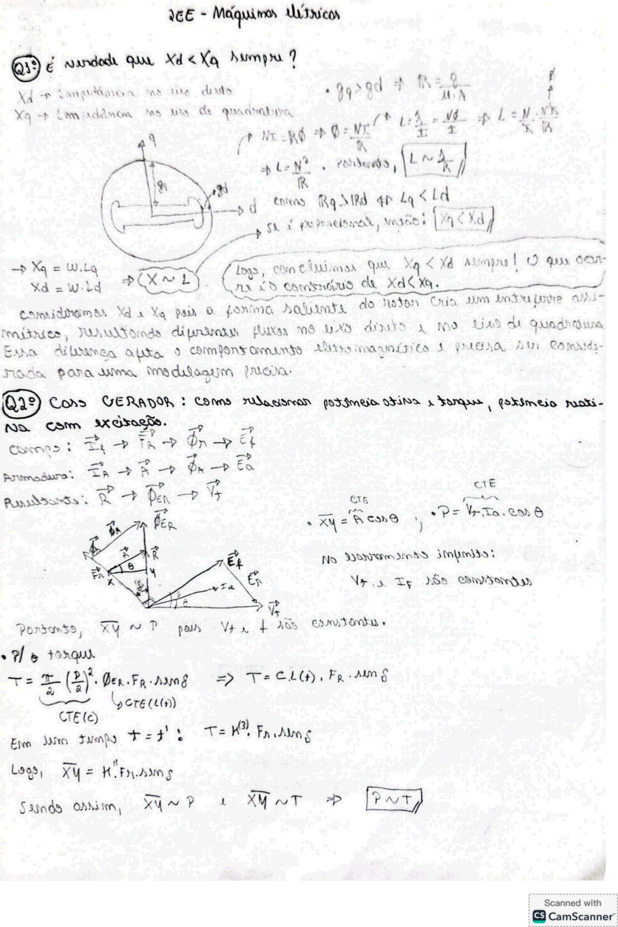 2EE - Máquinas elétricas
Q1º É verdade que Xd < Xq sempre?
Xd → Impedância no eixo direto
Xq → Impedância no eixo de quadratura
• gq > gd ⇒ ℝ = g / μ.A
NI = ℝØ ⇒ Ø = NI/ℝ
L = λ/I = NØ/I ⇒ L = N/I . NI/ℝ
Ø
⇒ L = N²/ℝ . Portanto, L ~ 1/ℝ
q
gq
gd
d
como ℝq > ℝd ⇔ Lq < Ld
se é proporcional, então: Xq < Xd
→ Xq = W.Lq
Xd = W.Ld ⇒ X ~ L
Logo, concluimos que Xq < Xd sempre! O que ocor-
re é o contrário de Xd < Xq.
consideramos Xd e Xq pois a forma saliente do rotor cria um entreferro assi-
métrico, resultando diferentes fluxos no eixo direto e no eixo de quadratura
Essa diferença afeta o comportamento eletromagnético e precisa ser conside-
rada para uma modelagem precisa.
Q2º Caso GERADOR: como relacionar potência ativa e torque, potência reati-
va com excitação.
Campo: If → FR → Ør → Ef
Armadura: IA → A → ØA → Ea
Resultante: R → ØER → Vt
CTE
• XY = A cosθ ;
CTE
• P = Vt.Ia.cosθ
No barramento infinito:
Vt e IF são constantes
ØER
R
θ
x
y
Ef
Ia
Vt
Portanto, XY ~ P pois Vt e f são constantes.
• P/ o torque
T = π/2 (P/2)². ØER.FR.senδ ⇒ T = C L(t). FR.senδ
CTE(c)
CTE(L(t))
Em um tempo t = t' : T = K⁽³⁾. Fr.senδ
Logo, XY = K''.Fr.senδ
Sendo assim, XY ~ P e XY ~ T ⇒ P ~ T
Scanned with
CS CamScanner